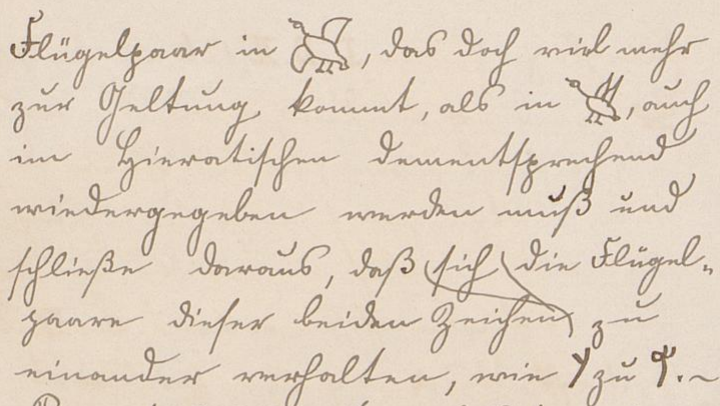 Flügelpaar in , das doch viel mehr
zur Geltung kommt, als in , auch
im Hieratischen dementsprechend
wiedergegeben werden muß und
schließe daraus, daß sich die Flügel-
paare dieser beiden Zeichen zu
einander verhalten, wie zu .–